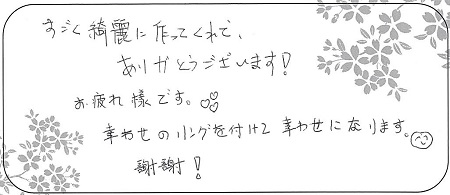 すごく綺麗に作ってくれて、
ありがとうございます!
お疲れ様です。
幸わせのリングを付けて幸わせになります。
謝謝!